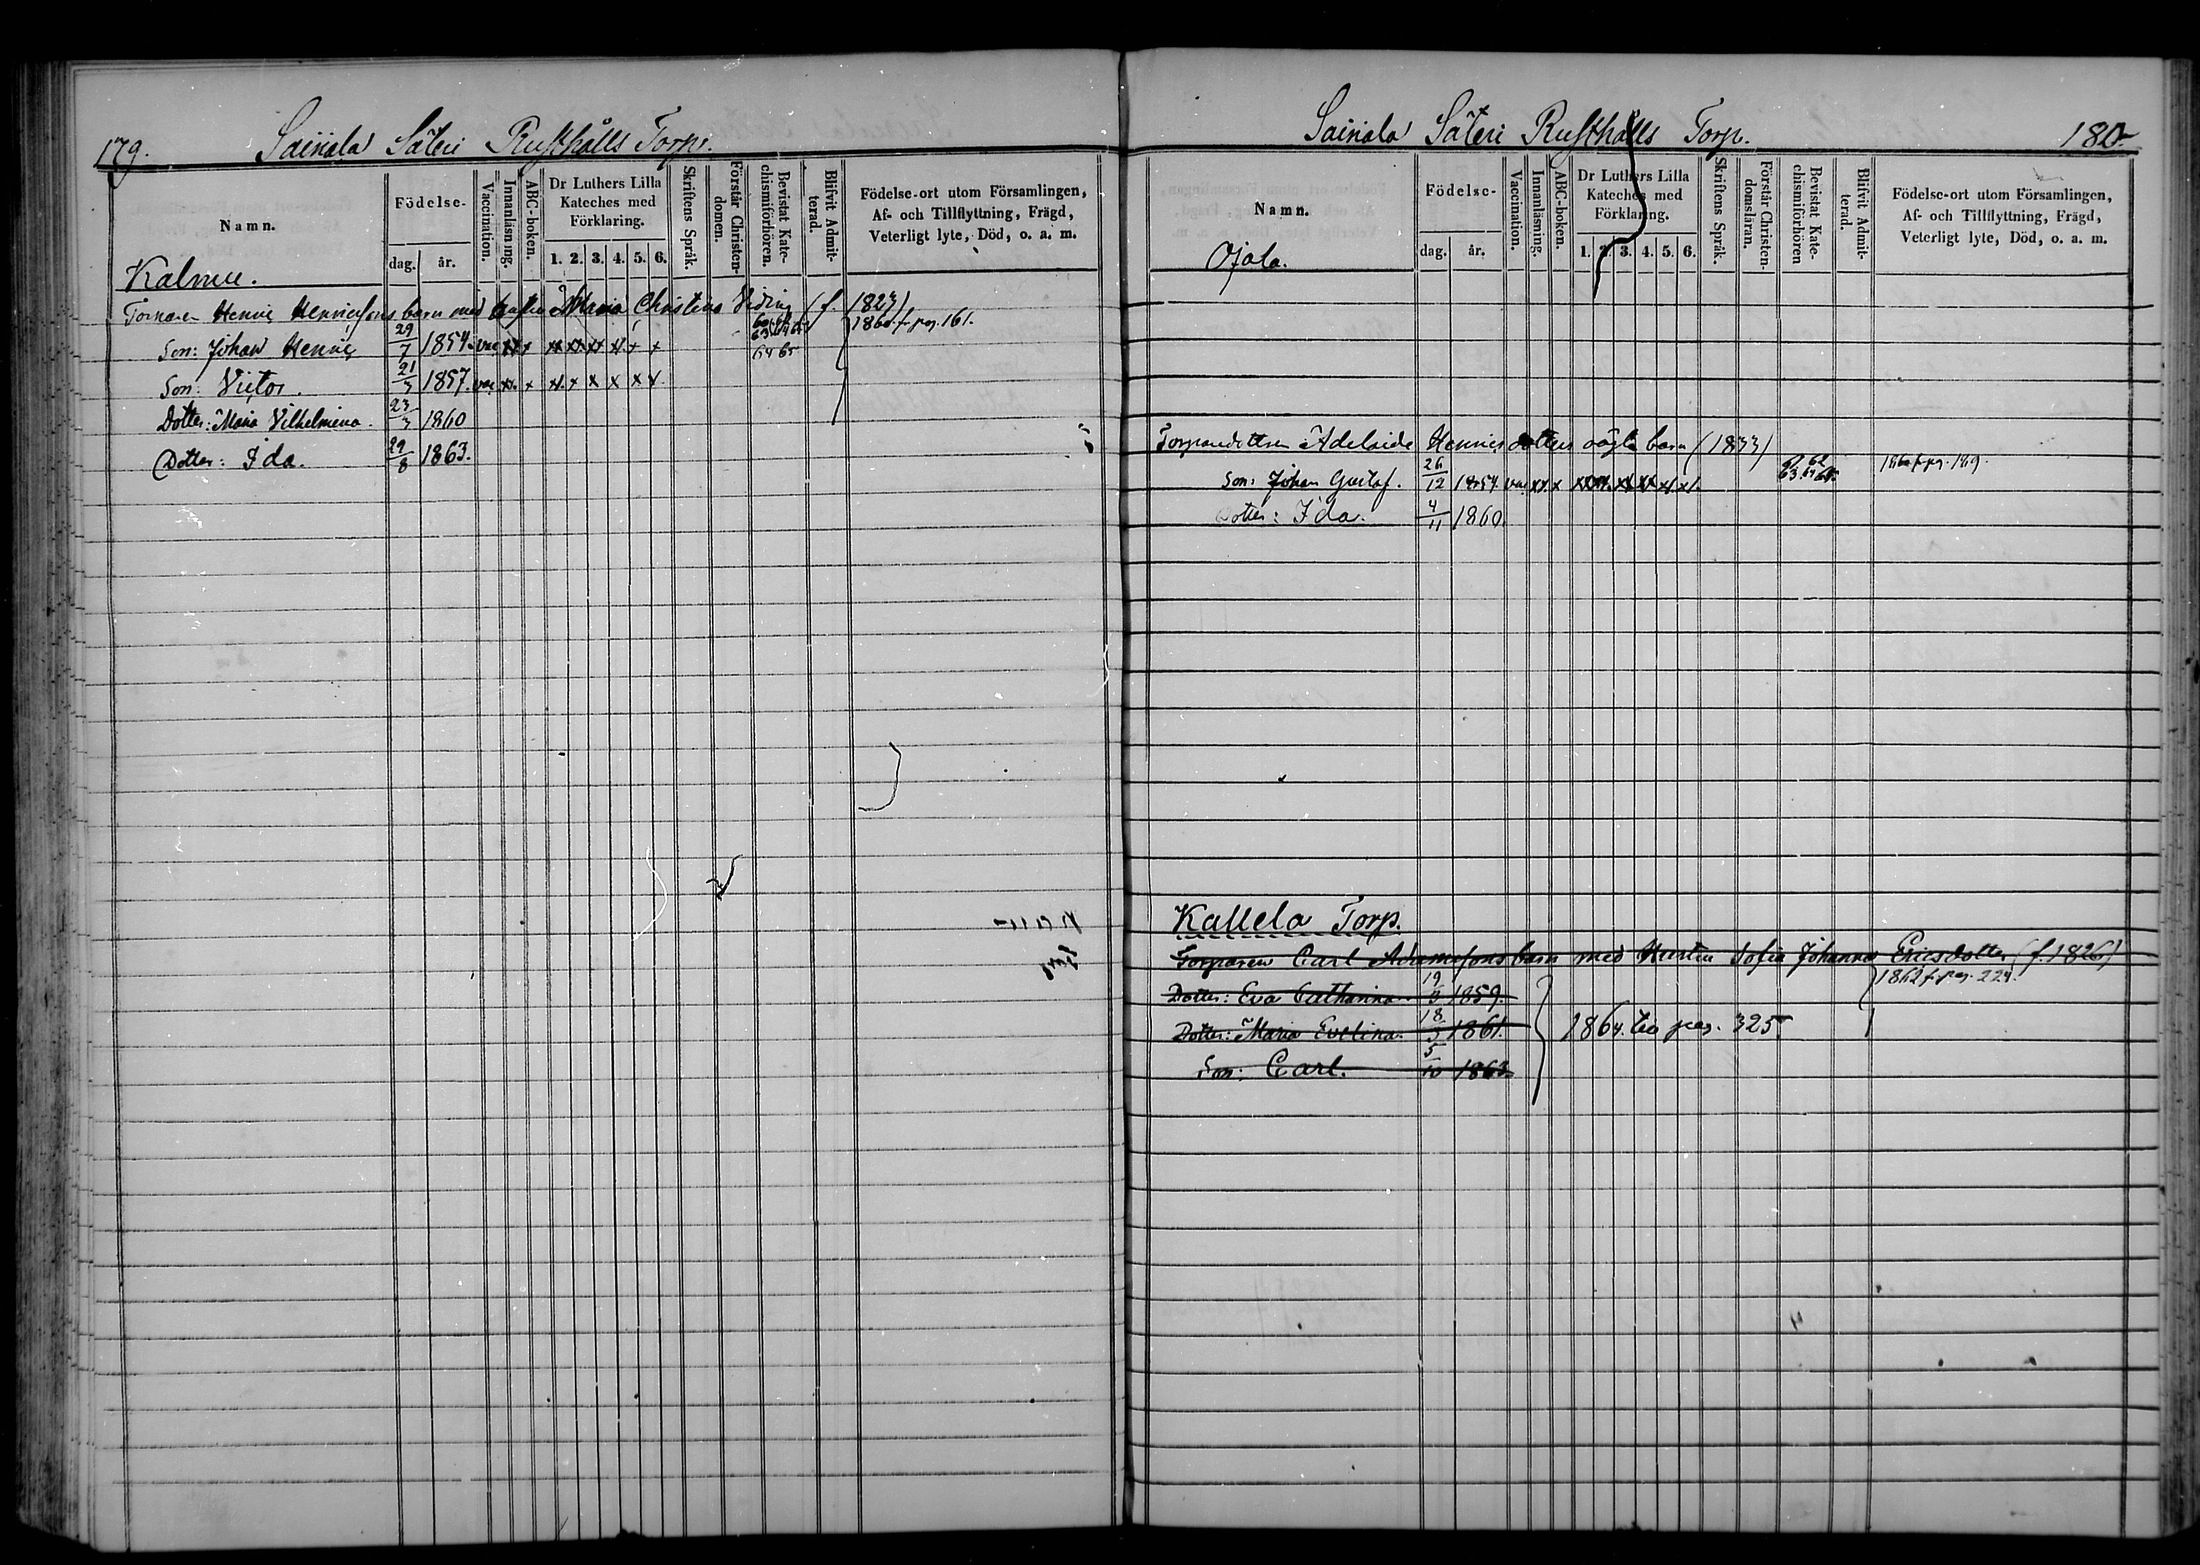 179. Sainiala Säteri Rusthålls Torp.
Namn. Födelse- dag. år. Vaccination. Innanläsning. ABC-boken. Dr Luthers Lilla Kateches med Förklaring. 1. 2. 3. 4. 5. 6. Skriftens Språk. Förstår Christendomen. Bevistat Katechismiförhören. Blifvit Admitterad. Födelse-ort utom Församlingen, Af- och Tillflyttning, Frägd, Veterligt lyte, Död, o. a. m.
Kalmu.
Henric Henricssons barn med Maria Christina Viding (f. 1827)
Son: Johan Henric 29/7 1854. vac xx x xx xx xx x x x 63 64 65 1860 fr. pag. 161.
Son: Victor. 21/3 1857. vac. xx. x x x x x x x
Dotter: Maria Vilhelmina. 23/3 1860
Dotter: Ida. 29/8 1863.
Sainiala Säteri Rusthålls Torp. 180.
Namn. Födelse- dag. år. Vaccination. Innanläsning. ABC-boken. Dr Luthers Lilla Kateches med Förklaring. 1. 2. 3. 4. 5. 6. Skriftens Språk. Förstår Christendomsläran. Bevistat Katechismiförhören Blifvit Admitterad. Födelse-ort utom Församlingen, Af- och Tillflyttning, Frägd, Veterligt lyte, Död, o. a. m.
Ojala.
Torparedottren Adelaide Henricsdotters oägta barn (1833)
Son: Johan Gustaf. 26/12 1854. vac xx x xx xx xx xx x x 62 63. 64 65. 1860 fr. pag. 169.
Dotter: Ida. 4/11 1860.
Kallela Torp.
Torparen Carl Adamssons barn med Hustru Sofia Johanna Ericsdotter (f. 1826)
Dotter: Eva Catharina. 19/3 1859. 1862 fr. pag. 224.
Dotter: Maria Evelina. 18/3 1861. 1864. till pag. 325.
Son: Carl. 5/10 1863.